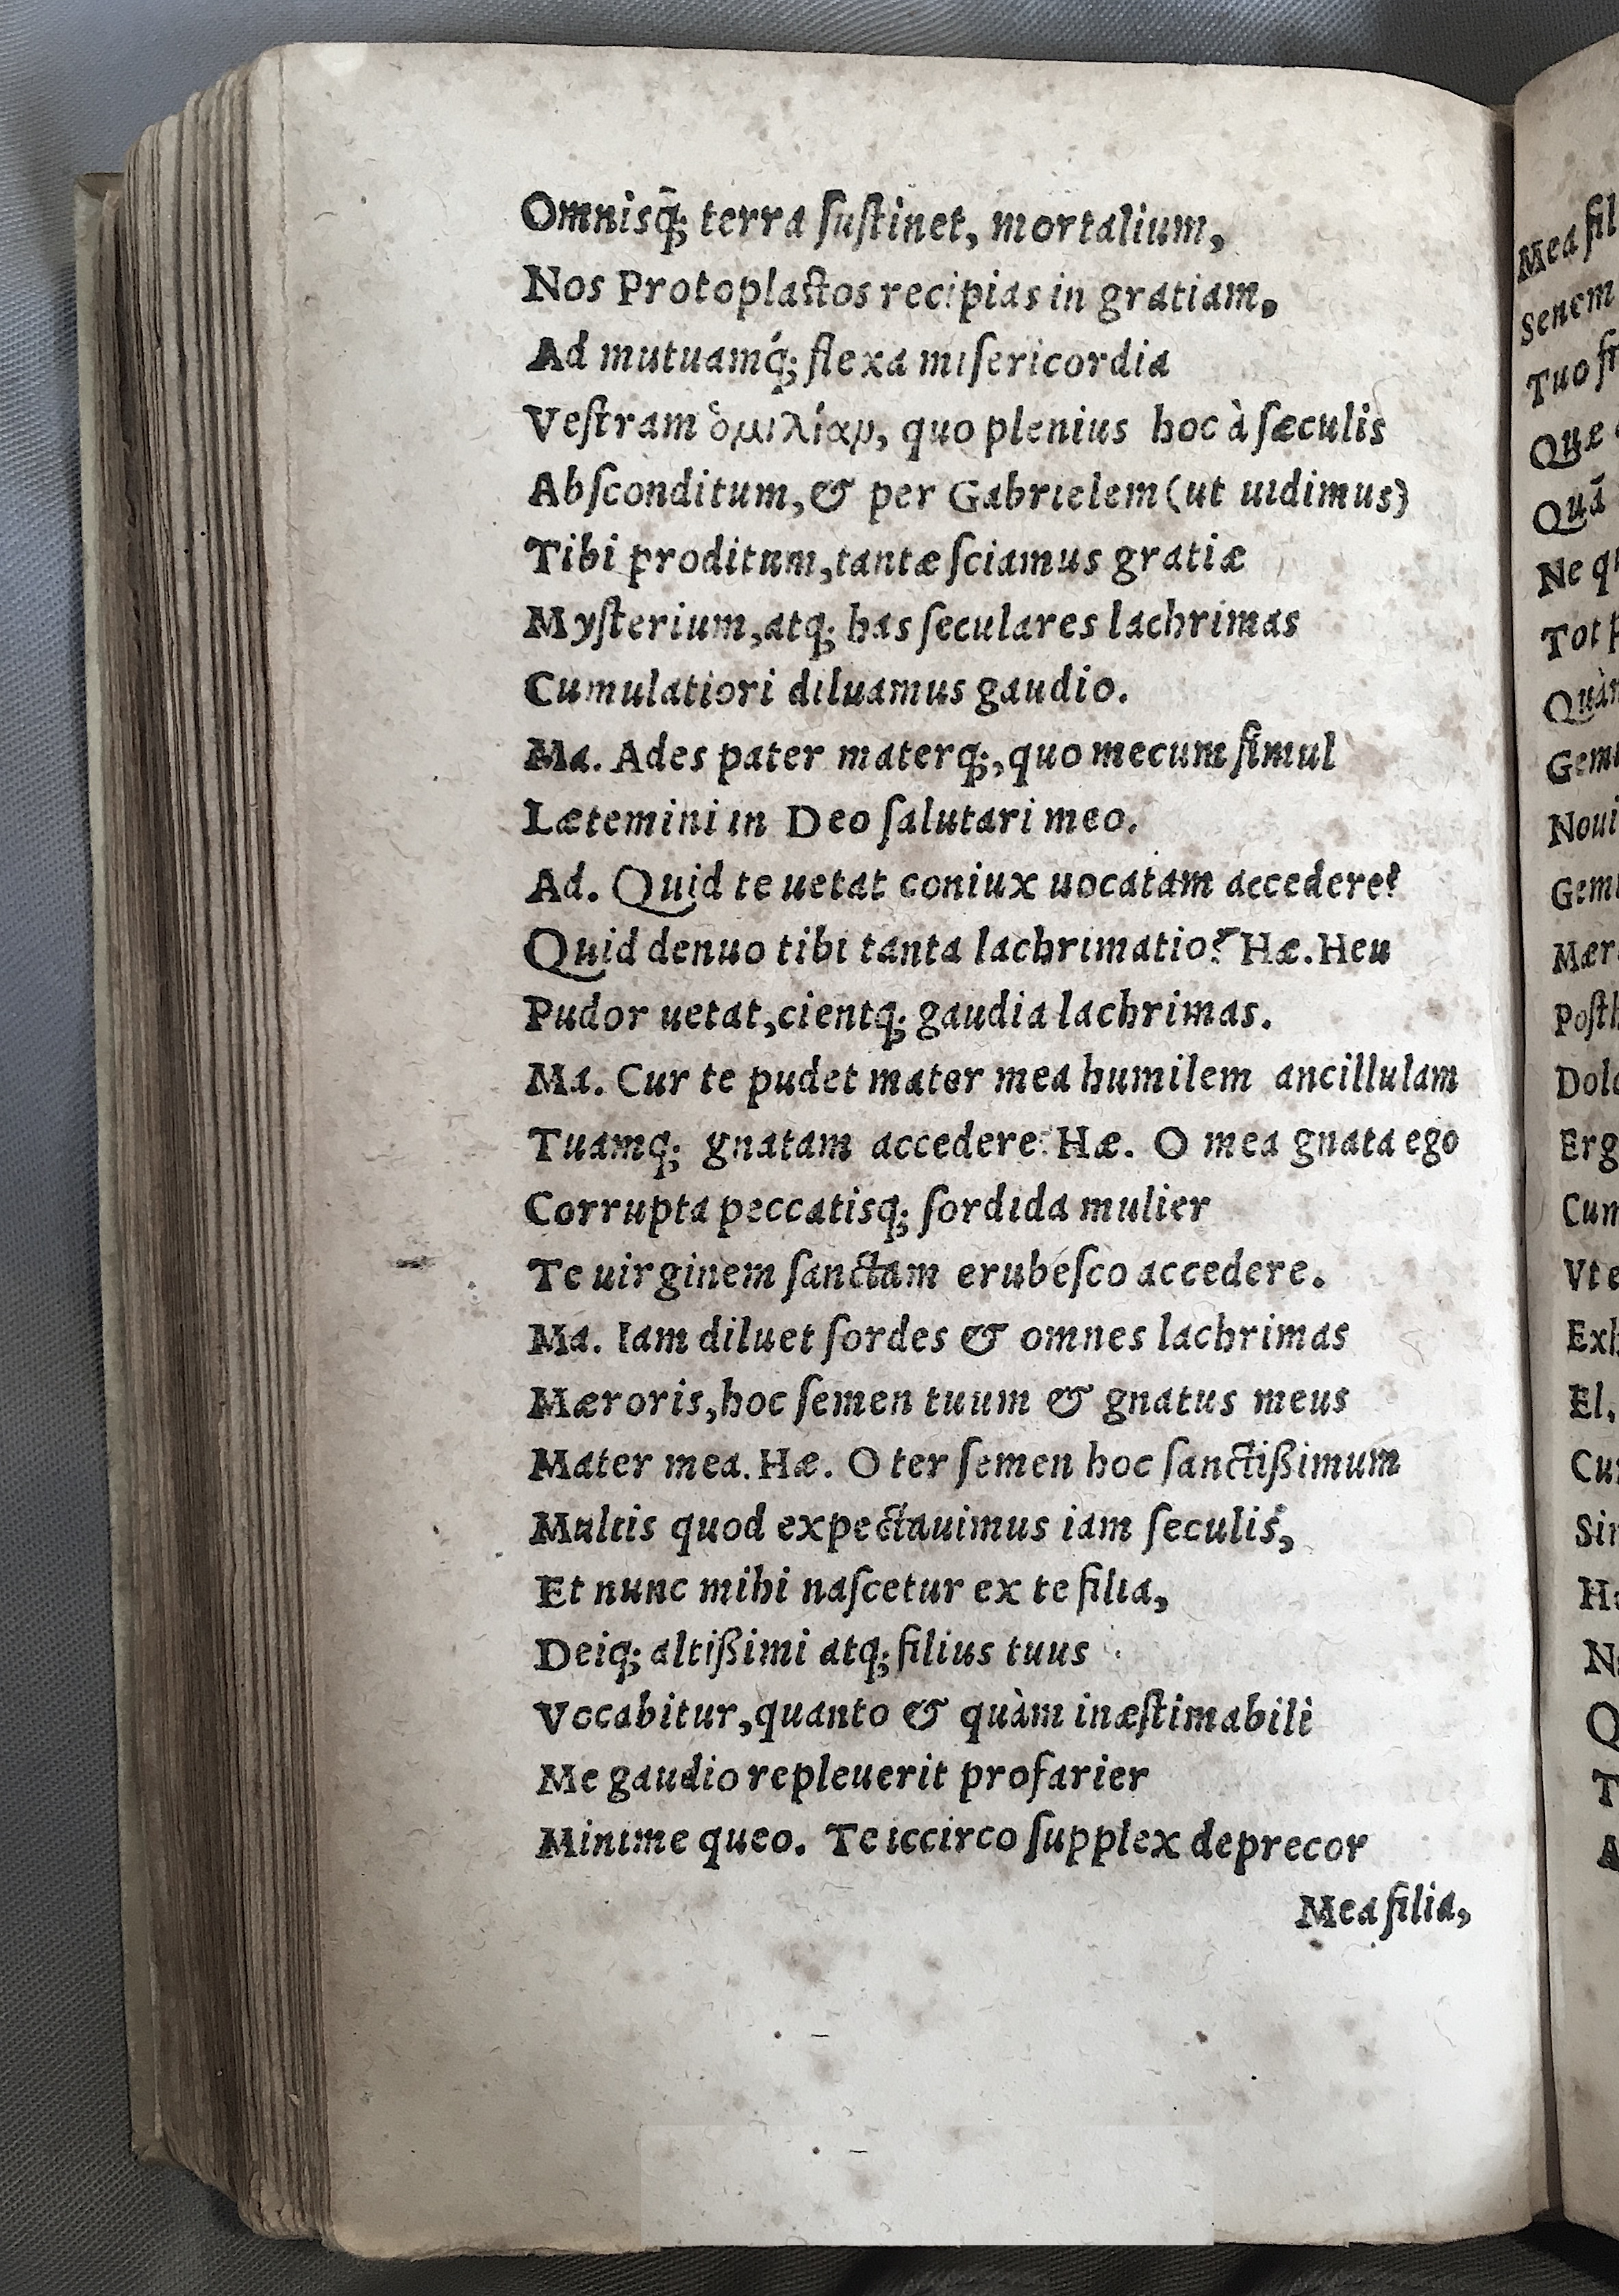 Omnisq̃; terra ſuſtinet, mortalium,
Nos Protoplaſtos recipias in gratiam,
Ad mutuamq́; flexa miſericordia
Veſtram ὁμιλίαν, quo plenius hoc à ſæculis
Abſconditum, & per Gabrielem (ut uidimus)
Tibi proditum, tantæ ſciamus gratiæ
Myſterium, atq; has ſeculares lachrimas
Cumulatiori diluamus gaudio.
Ma. Ades pater materq;, quo mecum ſimul
Lætemini in Deo ſalutari meo.
Ad. Quid te uetat coniux uocatam accedere?
Quid denuo tibi tanta lachrimatio? Hæ. Heu
Pudor uetat, cientq; gaudia lachrimas.
Ma. Cur te pudet mater mea humilem ancillulam
Tuamq; gnatam accedere? Hæ. O mea gnata ego
Corrupta peccatisq; ſordida mulier
Te uirginem ſanctam erubeſco accedere.
Ma. Iam diluet ſordes & omnes lachrimas
Mæroris, hoc ſemen tuum & gnatus meus
Mater mea. Hæ. O ter ſemen hoc ſanctißimum
Multis quod expectauimus iam ſeculis,
Et nunc mihi naſcetur ex te filia,
Deiq; altißimi atq; filius tuus
Vocabitur, quanto & quàm inæſtimabili
Me gaudio repleuerit profarier
Minime queo. Te iccirco ſupplex deprecor
Mea filia,
Mea fil
Senem
Tuo fr
Quæ
Quā
Ne qu
Tot p
Quàm
Gemi
Noui
Gemi
Mær
Poſth
Dolo
Erg
Cum
Vt e
Exh
El.
Cur
Sin